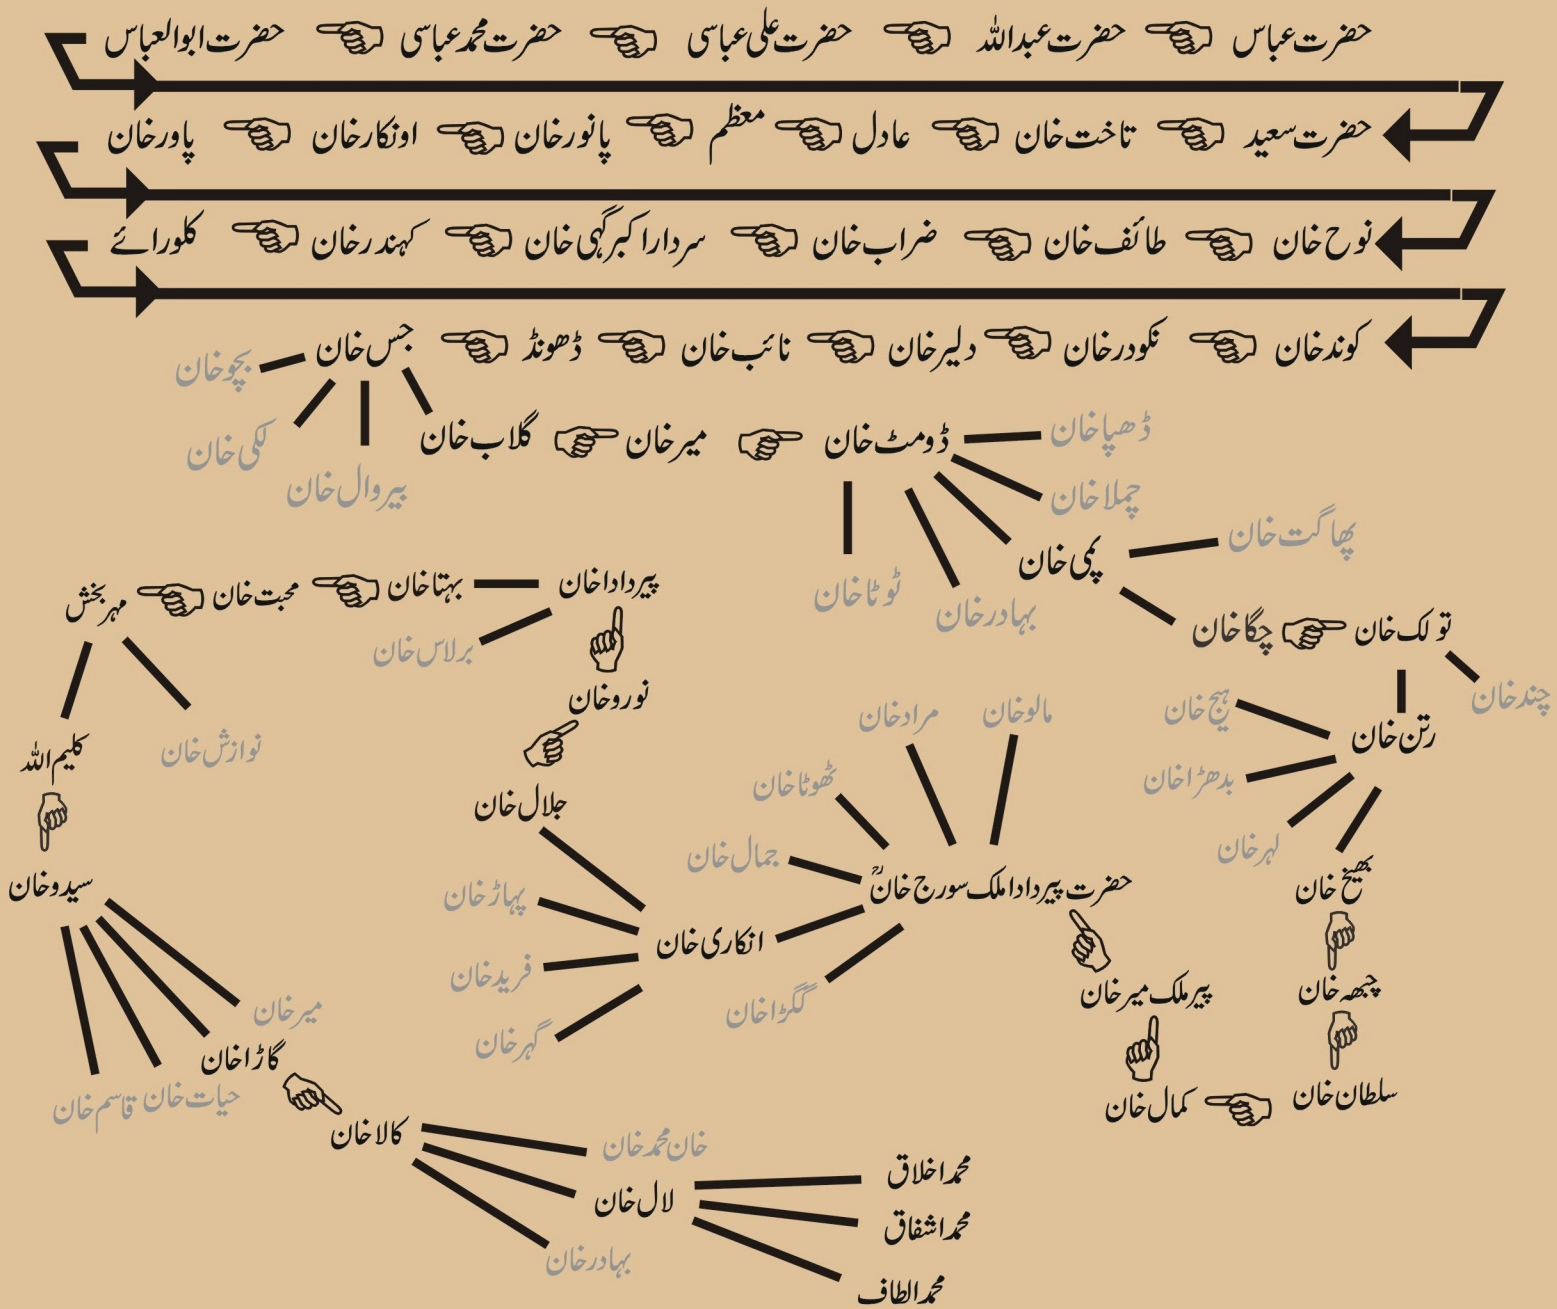 حضرت عباس حضرت عبداللہ حضرت علی عباسی حضرت محمد عباسی حضرت ابوالعباس
حضرت سعید تاخت خان عادل معظم پانور خان اونکار خان پاور خان
نوح خان طائف خان ضراب خان سردار اکبر گہی خان کہندر خان کلورائے
کوند خان نکودر خان دلیر خان نائب خان ڈھونڈ جس خان
بچو خان
لکی خان
بیروال خان
گلاب خان میر خان ڈومٹ خان
ڈھپا خان
چملا خان
پمی خان
پھاگت خان
بہادر خان
ٹوٹا خان
چگا خان تولک خان
چند خان
رتن خان
بدھڑا خان
لہر خان
بھیخ خان
چبھہ خان
سلطان خان
کمال خان
پیر ملک میر خان
حضرت پیر دادا ملک سورج خانؒ
مالو خان
مراد خان
ٹھوٹا خان
جمال خان
گگڑا خان
انکاری خان
پہاڑ خان
فرید خان
گہر خان
جلال خان
نورو خان
پیر دادا خان
برلاس خان
بہتا خان
محبت خان
مہر بخش
نوازش خان
کلیم اللہ
سیدو خان
میر خان
گاڑا خان
حیات خان
قاسم خان
کالا خان
خان محمد خان
لال خان
بہادر خان
محمد اخلاق
محمد اشفاق
محمد الطاف